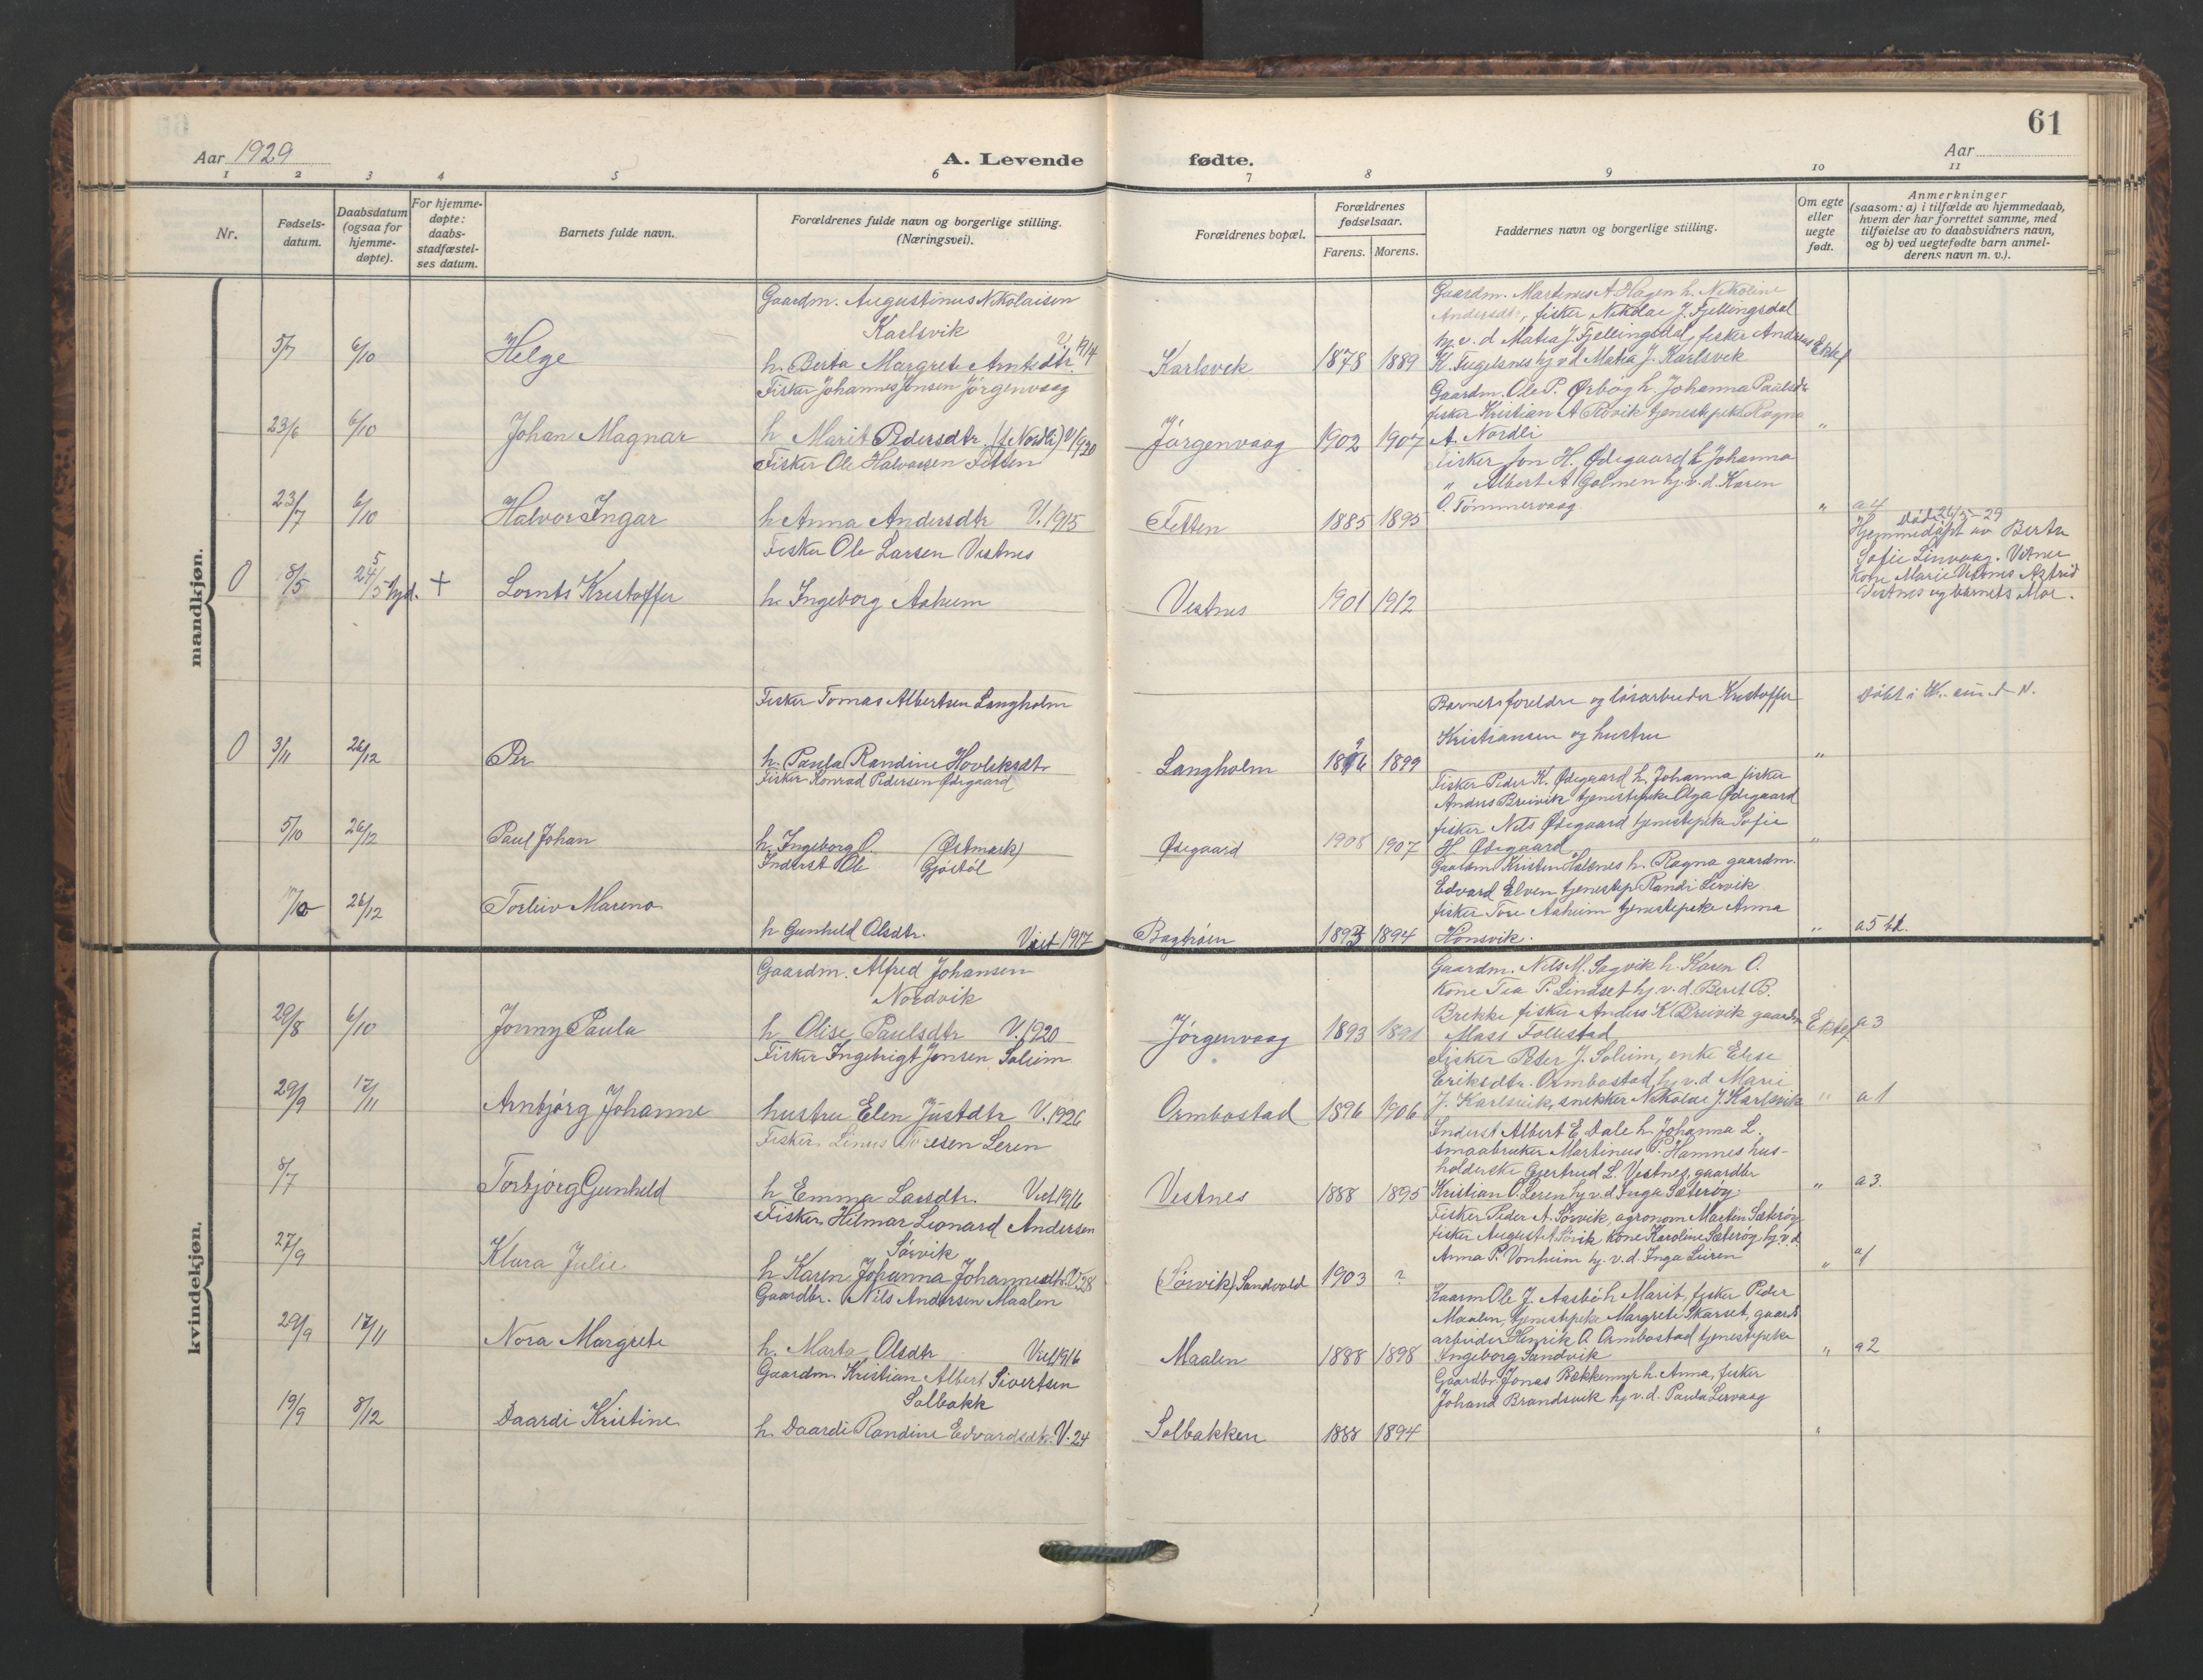 61
Aar 1929
A. Levende
fødte.
Aar
1 2 3 4 5 6 7 8 9 10 11
Nr.
Fødsels-
datum.
Daabsdatum
(ogsaa for
hjemme-
døpte).
For hjemme-
døpte:
daabs-
stadfæstel-
ses datum.
Barnets fulde navn.
Forældrenes fulde navn og borgerlige stilling.
(Næringsvei).
Forældrenes bopæl.
Forældrenes
fødselsaar.
Farens. Morens.
Faddernes navn og borgerlige stilling.
Om egte
eller
uegte
født.
Anmerkninger
(saasom: a) i tilfælde av hjemmedaab,
hvem der har forrettet samme, med
tilføielse av to daabsvidners navn,
og b) ved uegtefødte barn anmel-
derens navn m. v.).
mandkjøn.
Gaardm. Augustinus Nikolaisen
Karlsvik
V. 1914
5/7 6/10 Helge
h. Berta Margrete Arntsdtr.
Karlsvik 1878 1889
Gaardm. Martinus A Hagen h. Nikoline
Andersdtr, fisker Nikolai J. Fjellingsdal
hj. v. d Matea J. Fjellingsdal, fisker Andreas
K. Fugelsnes hj v d Matea J. Karlsvik
Ektef
Fisker Johannes Jonsen Jørgenvaag
23/6 6/10 Johan Magnar
h Marit Pedersdtr. (f. Nordli) V 1920
Jørgenvaag 1902 1907
Gaardm. Ole P. Ørbog h. Johanna Paalsdtr
fisker Kristian A Rovik tjenestepike Ragna
A. Nordli
"
Fisker Ole Halvorsen Tetten
23/7 6/10 Halvor Ingar
h Anna Andersdtr V. 1915
Tetten 1885 1895
Fisker Jon H. Ødegaard h Johanna
" Albert A Golmen hj. v. d. Karen
O. Tømmervaag
" a 4
Fisker Ole Larsen Vestnes
0 8/5 24/5 hjd. + Lornts Kristoffer
h. Ingeborg Aaheim
Vestnes 1901 1912
Død 26/5-29
Hjemmedøpt av Berta
Sofie Linvaag. Vitner
Kone Marie Vestnes Astrid
Vestnes og barnets Mor.
Fisker Tomas Albertsen Langholm
0 3/11 26/12 Per
h. Paula Randine Hovleksdtr
Langholm 1896 1899
Barnets foreldre og løsarbeider Kristoffer
Kristiansen og hustru
"
Døbt i Kr. sund N.
Fisker Konrad Pedersen Ødegaard
5/10 26/12 Paul Johan
h. Ingeborg O. (Østmark)
Ødegaard 1908 1907
Fisker Peder K. Ødegaard h. Johanna fisker
Anders Breivik tjenestepike Olga Ødegaard
fisker Nils Ødegaard tjenestepike Sofie
H. Ødegaard
"
Inderst Ole Gjøstøl
7/10 26/12 Torleiv Mareno
h Gunhild Olsdtr. Viet 1917
Bagtrøen 1893 1894
Gaardm Kristen Halsnes h. Ragna gaardm.
Edvard Elven tjenestep. Randi Lervik
fisker Tore Aaheim tjenestepike Anna
Honsvik.
" a 5 bd.
kvindekjøn.
Gaardm. Alfred Johansen
Nordvik
29/8 6/10 Jonny Paula
h Olise Paulsdtr V. 1920
Jørgenvaag 1893 1891
Gaardm. Nils M. Sagvik h. Karen O.
Kone Tea P. Lindset hj. v. d. Beret B.
Brekke fisker Anders K Breivik gaardm
Mass Follestad
Ektef a 3
Fisker Ingebrigt Jonsen Soleim
29/9 17/11 Arnbjørg Johanne
hustru Elen Justdtr V. 1926
Ormbostad 1896 1906
Fisker Peder J. Soleim, enke Elise
Eriksdtr. Ormbostad hj v. d Marie
J. Karlsvik, snekker Nikolai J Karlsvik
" a 1
Fisker Linus Toresen Leren
8/7 Torbjørg Gunhild
h Emma Larsdtr. Viet 1916
Vestnes 1888 1895
Inderst Albert E. Dale h. Johanna L.
smaabruker Martinus P. Hamnes hus-
holderske Gjertrud L. Vestnes, gaardbr
Kristian O. Leren hj v. d Inga Sæterøy.
" a 3.
Fisker Hilmar Leonard Andersen
Sørvik
27/9 Klara Julie
h Karen Johanna Johannesdtr. V. 28
(Sørvik) Sandvold 1903 ?
Fisker Peder A. Sørvik, agronom Martin Sæterøy
fisker August A Sørvik Kone Karoline Sæterøy, hj. v. d.
Anna P. Vonheim hj. v. d. Inga Leiren
" a 1
Gaardbr. Nils Andersen Maalen
29/9 17/11 Nora Margrete
h. Marta Olsdtr Viet 1916
Maalen 1888 1898
Kaarm Ole J. Aasbø h Marit, fisker Peder
Maalen, tjenestepike Margrete Skarset, gaards
arbeider Henrik O. Ormbostad tjenestepike
Ingeborg Sandvik
" a 2
Gaardm. Kristian Albert Sivertsen
Solbakk
19/9 8/12 Daardi Kristine
h. Daardi Randine Edvardsdtr. V. 24
Solbakken 1888 1894
Gaardbr. Jonas Bækkemyr h. Anna, fisker
Johand Brandsvik hj v. d. Paula Lervaag
"